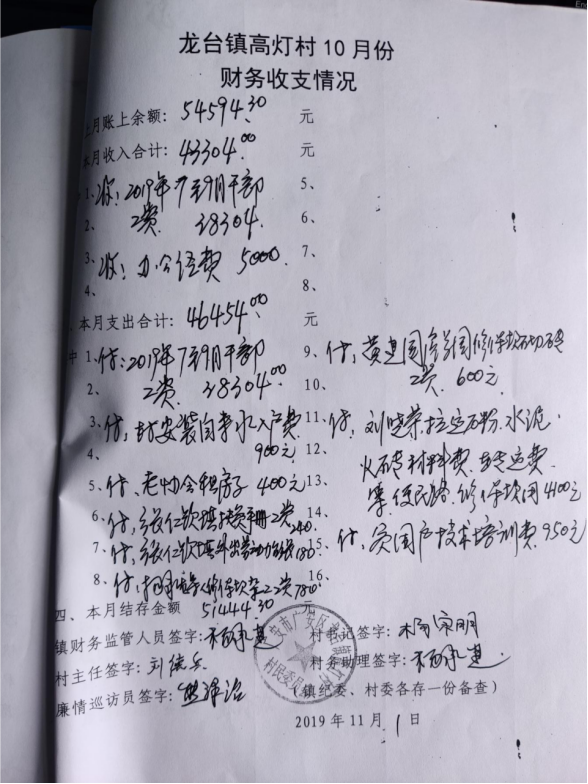 龙台镇高灯村10月份
财务收支情况
上月账上余额: 54594.30 元
本月收入合计: 43304.00 元
1、收: 2019年7至9月干部 5、
2、 工资 38304. 6、
3、收: 办公经费 5000. 7、
4、 8、
本月支出合计: 46454.00 元
中 1、付: 2019年7至9月干部 9、付, 黄建国
2、 工资. 38304.00 10、 工资. 600元
3、付, 安装自来水入户费 11、付, 刘晓荣 拉运石粉. 水泥.
4、 900元 12、 火砖材料费. 转运费.
5、付、老协会租房子 400元 13、 便民路. 4100元
6、付, 张仁钦填扶贫手册工资 240. 14、
7、付, 张仁钦填外出劳动力 180. 15、付, 技术培训费. 950元
8、付, 工资780. 16、
四、本月结存金额 51444.30 元
镇财务监管人员签字: 村书记签字:
村主任签字: 刘德兵 村务助理签字:
廉情巡访员签字: (镇纪委、村委各存一份备查)
2019年11月1日